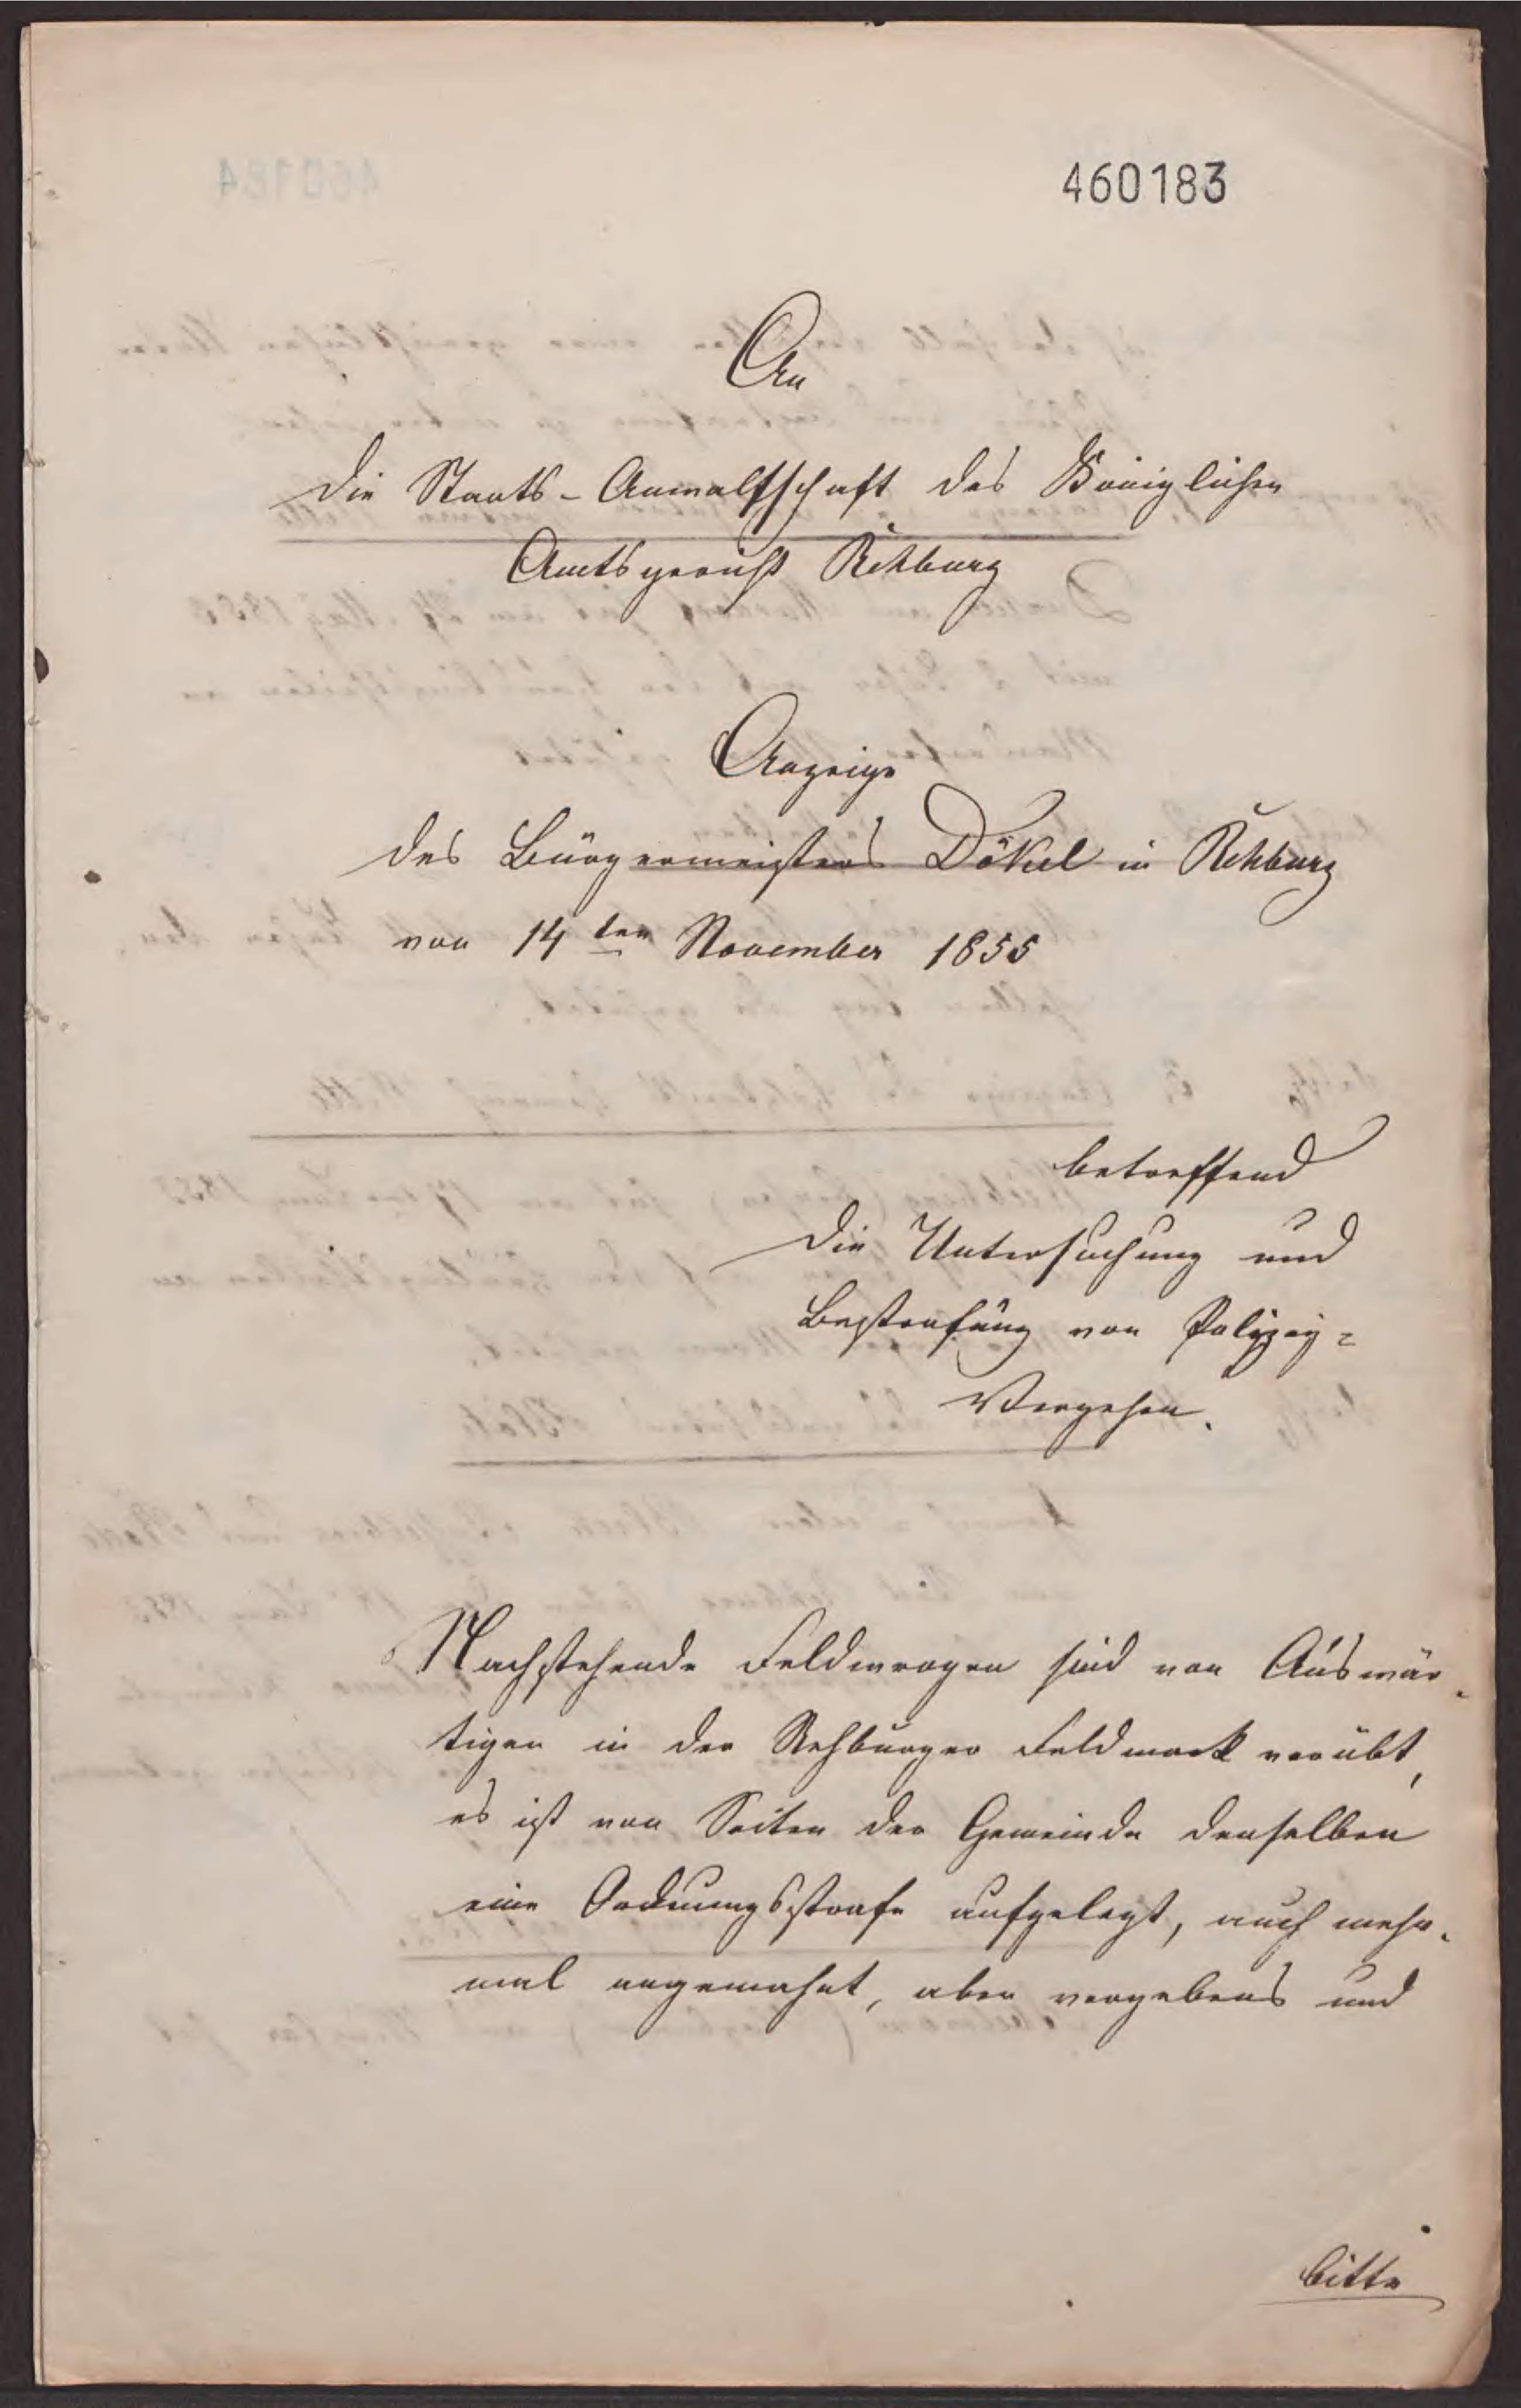 460183
An
die Staats-Anwaltschaft des Königlichen
Amtsgericht Rehburg
Anzeige
des Bürgermeisters Dökel in Rehburg
von 14ten November 1855
betreffend
die Untersuchung und
Bestrafung von Polizey=
Vergehen.
Nachstehende Feldwrogen sind von Auswär-
tigen in der Rehburger Feldmark verübt,
es ist von Seiten der Gemeinde denselben
eine Ordnungsstrafe aufgelegt, auch mehr-
mal angemahnt, aber vergebens und
bitte